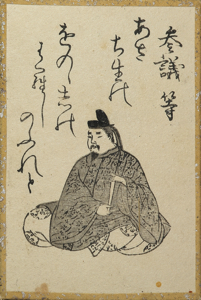 参議等
あさ
ち生の
をのゝしの
はらし
のふれと